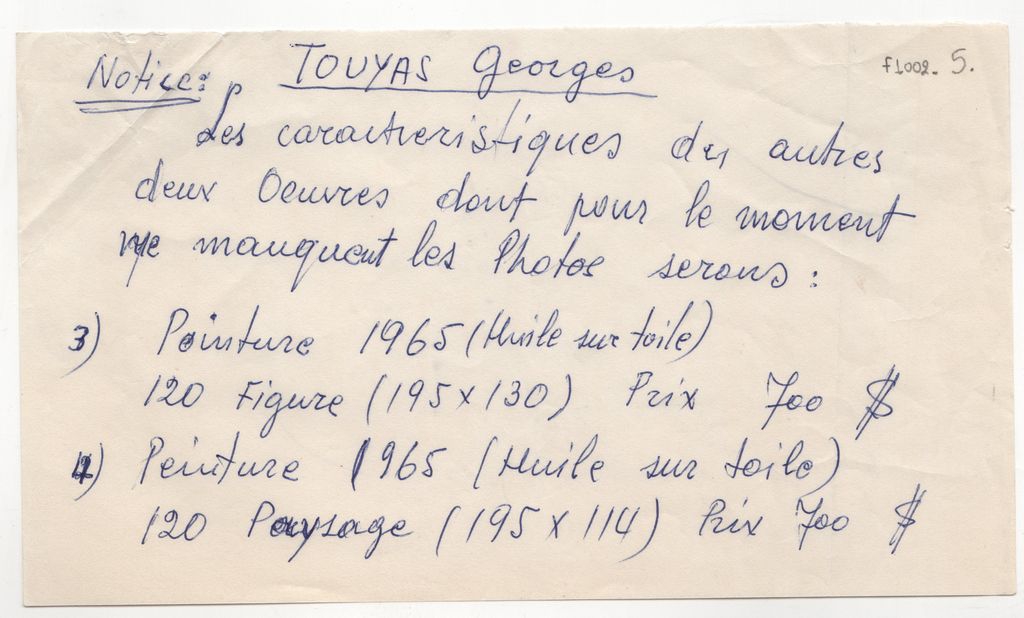 Notice: TOUYAS Georges f1002. 5.
Les caracteristiques des autres
deux Oeuvres dont pour le moment
me manquent les Photos serons :
3) Peinture 1965 (Huile sur toile)
120 Figure (195 x 130) Prix 700 $
4) Peinture 1965 (Huile sur toile)
120 Paysage (195 x 114) Prix 700 $